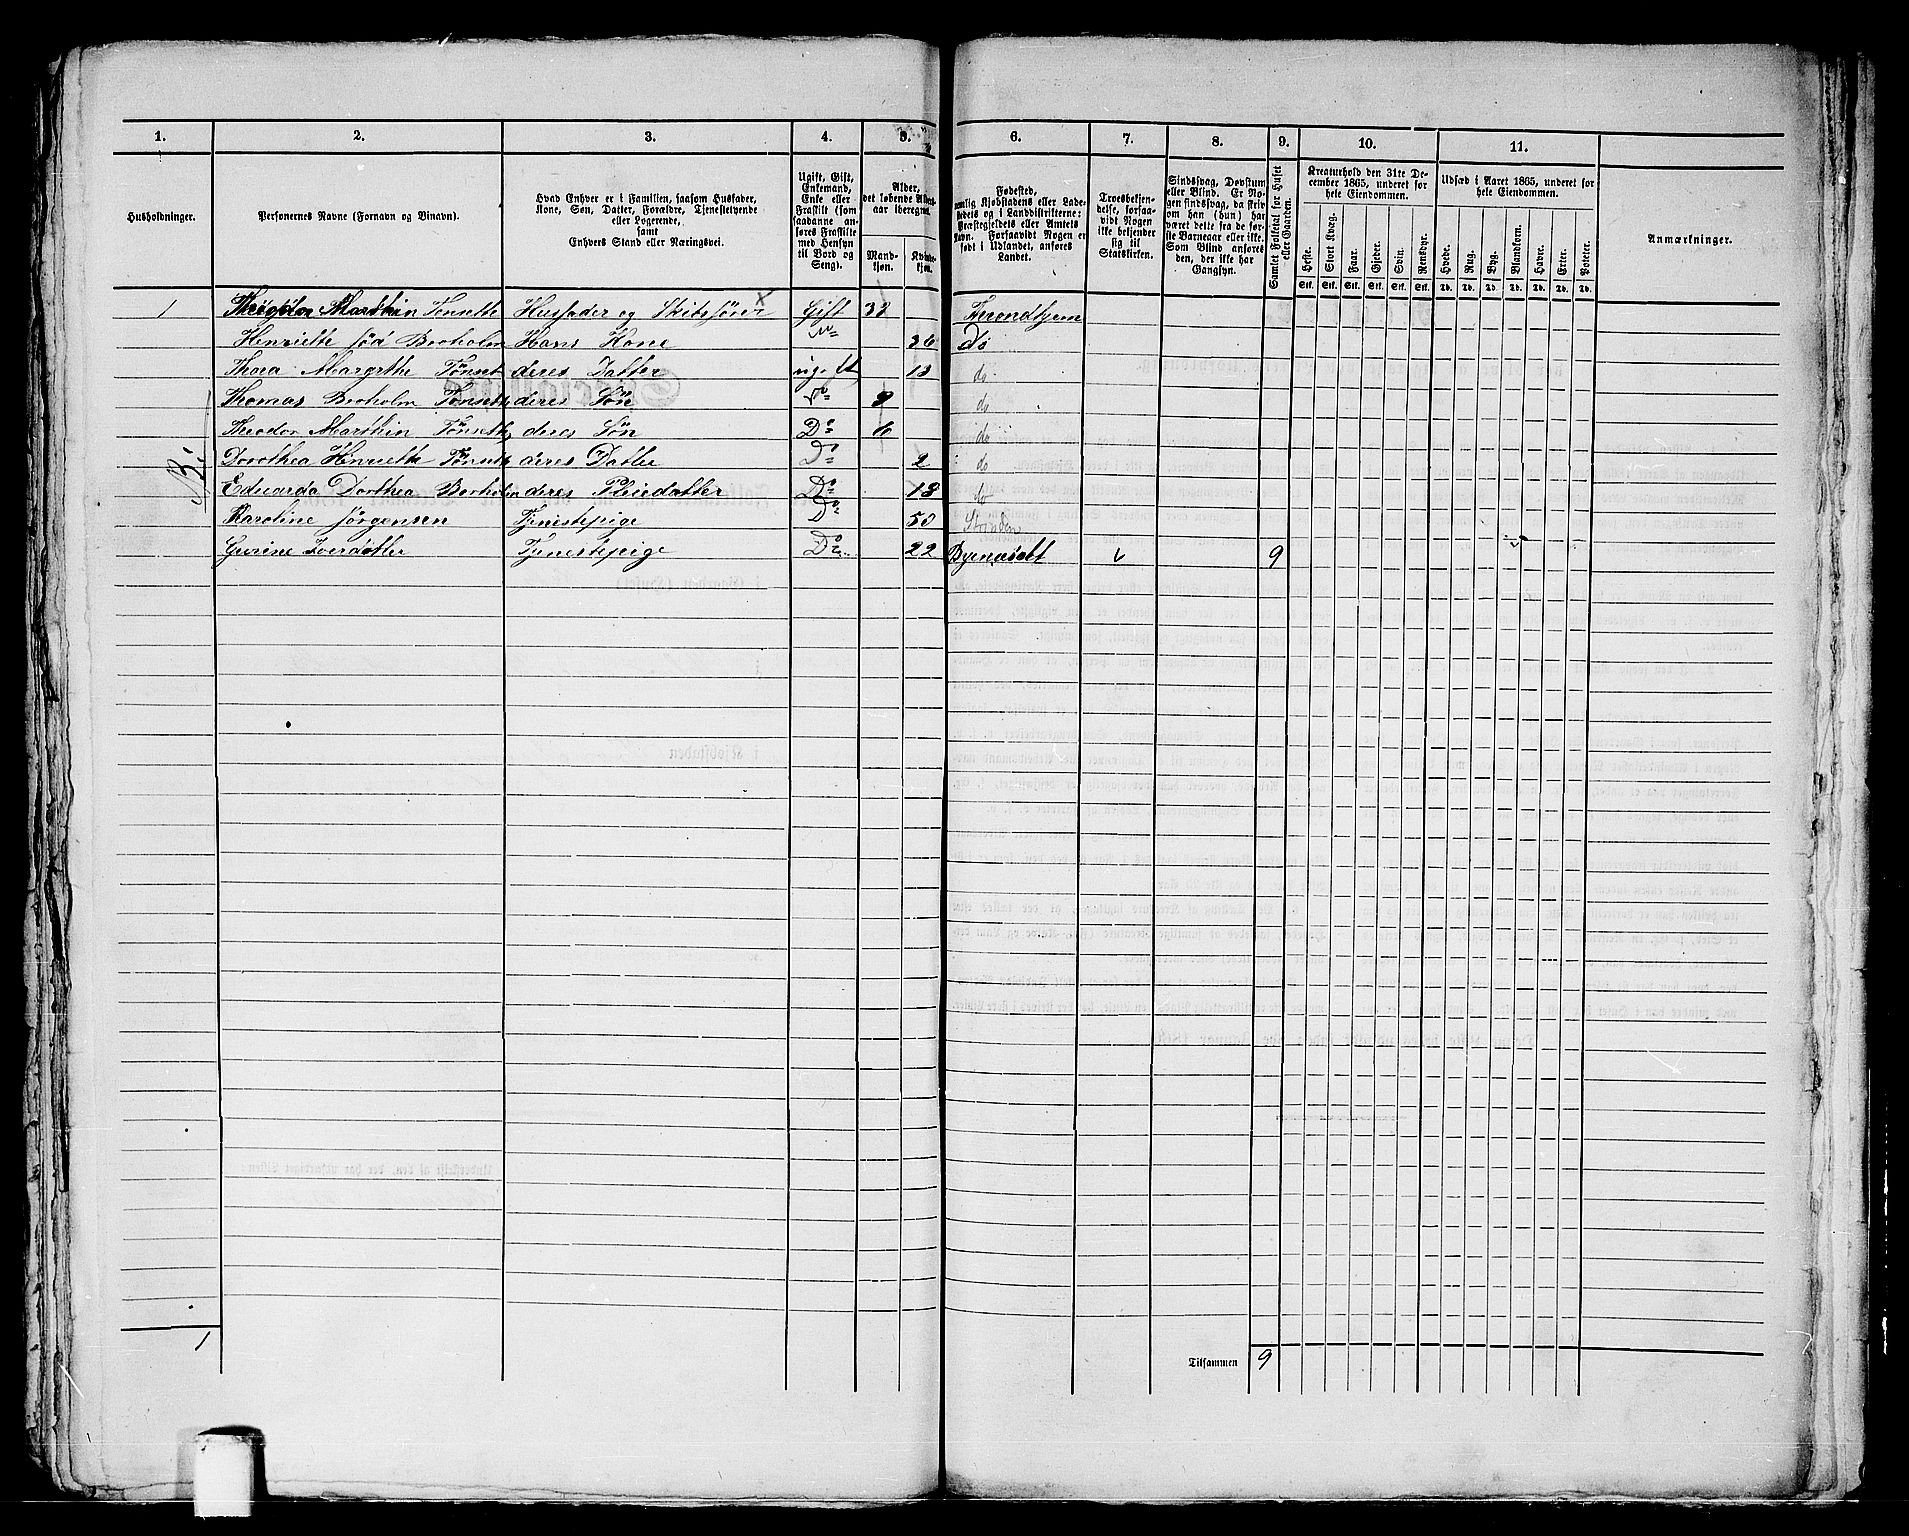 1. 2. 3. 4. 5. 6. 7. 8. 9. 10. 11.
Husholdninger.
Personernes Navne (Fornavn og Binavn).
Hvad Enhver er i Familien, saasom Husfader,
Kone, Søn, Datter, Forældre, Tjenestetyende
eller Logerende,
samt
Enhvers Stand eller Næringsvei.
Ugift, Gift,
Enkemand,
Enke eller
Fraskilt (som
saadanne an-
føres Fraskilte
med Hensyn
til Bord og
Seng).
Alder,
det løbende Alders-
aar iberegnet.
Mand-
kjøn.
Kvinde-
kjøn.
Fødested,
nemlig Kjøbstadens eller Lade-
stedets og i Landdistrikterne:
Præstegjeldets eller Amtets
Navn. Forsaavidt Nogen er
født i Udlandet, anføres
Landet.
Troesbekjen-
delse, forsaa-
vidt Nogen
ikke bekjender
sig til
Statskirken.
Sindssvag, Døvstum
eller Blind. Er No-
gen sindssvag, da skriv
om han (hun) har
været dette fra de før-
ste Barneaar eller ikke.
Som Blind ansøres
den, der ikke har
Gangsyn.
Samlet Folketal for Huset
eller Gaarden.
Kreaturhold den 31te De-
cember 1865, underet for
hele Eiendommen.
Heste. Stort Kvæg. Faar. Gjeder. Svin. Rensdyr.
Stk. Stk. Stk. Stk. Stk. Stk.
Udsæd i Aaret 1865, underet for
hele Eiendommen.
Hvede. Rug. Byg. Blandkorn. Havre. Erter. Poteter.
Td. Td. Td. Td. Td. Td. Td.
Anmærkninger.
1 Theodor Marthin Tønseth Husfader og Skibsfører Gift 38 Therondhjem
Henriette fød Boxholm Hans Kone Do 36 do
Thora Margrthe Tønset deres Datter ugift 13 do
Thomas Boxholm Tønseth deres Søn Do 8 do
Theodor Marthin Tønseth deres Søn Do 6 do
Dorothea Hinriette Tønseth deres Datter Do 2 do
Eduarda Dorthea Boxholm deres Pleiedatter Do 18 do
Karoline Jørgensen Tjenestepige Do 50 Stranden
Gurine Iversdatter Tjenestepige Do 22 Byenæsset 9
1
Tilsammen 9